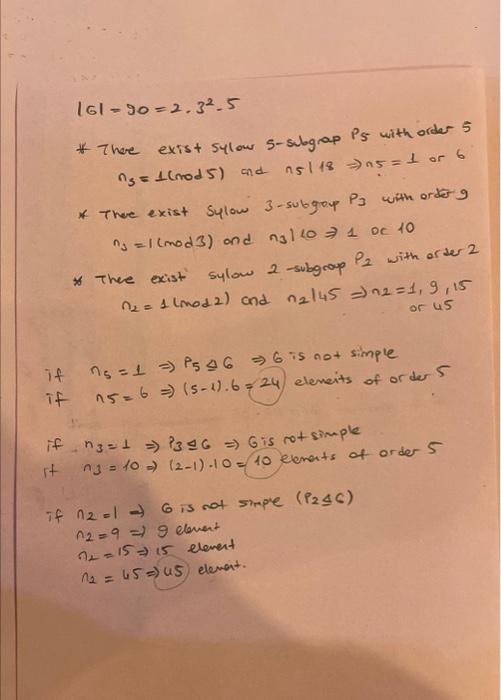 |G| = 90 = 2.3².5
* There exist Sylow 5-subgrap P5 with order 5
n5 = 1(mod5) and n5|18 ⇒ n5 = 1 or 6
* There exist Sylow 3-subgroup P3 with order 9
n3 = 1(mod3) and n3|10 ⇒ 1 or 10
* Thee exist sylow 2-subgroup P2 with order 2
n2 = 1(mod2) and n2|45 ⇒ n2 = 1, 9, 15
or 45
if n5 = 1 ⇒ P5 ⊴ G ⇒ G is not simple
if n5 = 6 ⇒ (5-1).6 = 24 elements of order 5
if n3 = 1 ⇒ P3 ⊴ G ⇒ G is not simple
if n3 = 10 ⇒ (2-1).10 = 10 elements of order 5
if n2 = 1 ⇒ G is not simple (P2 ⊴ G)
n2 = 9 ⇒ 9 element
n2 = 15 ⇒ 15 element
n2 = 45 ⇒ 45 element.